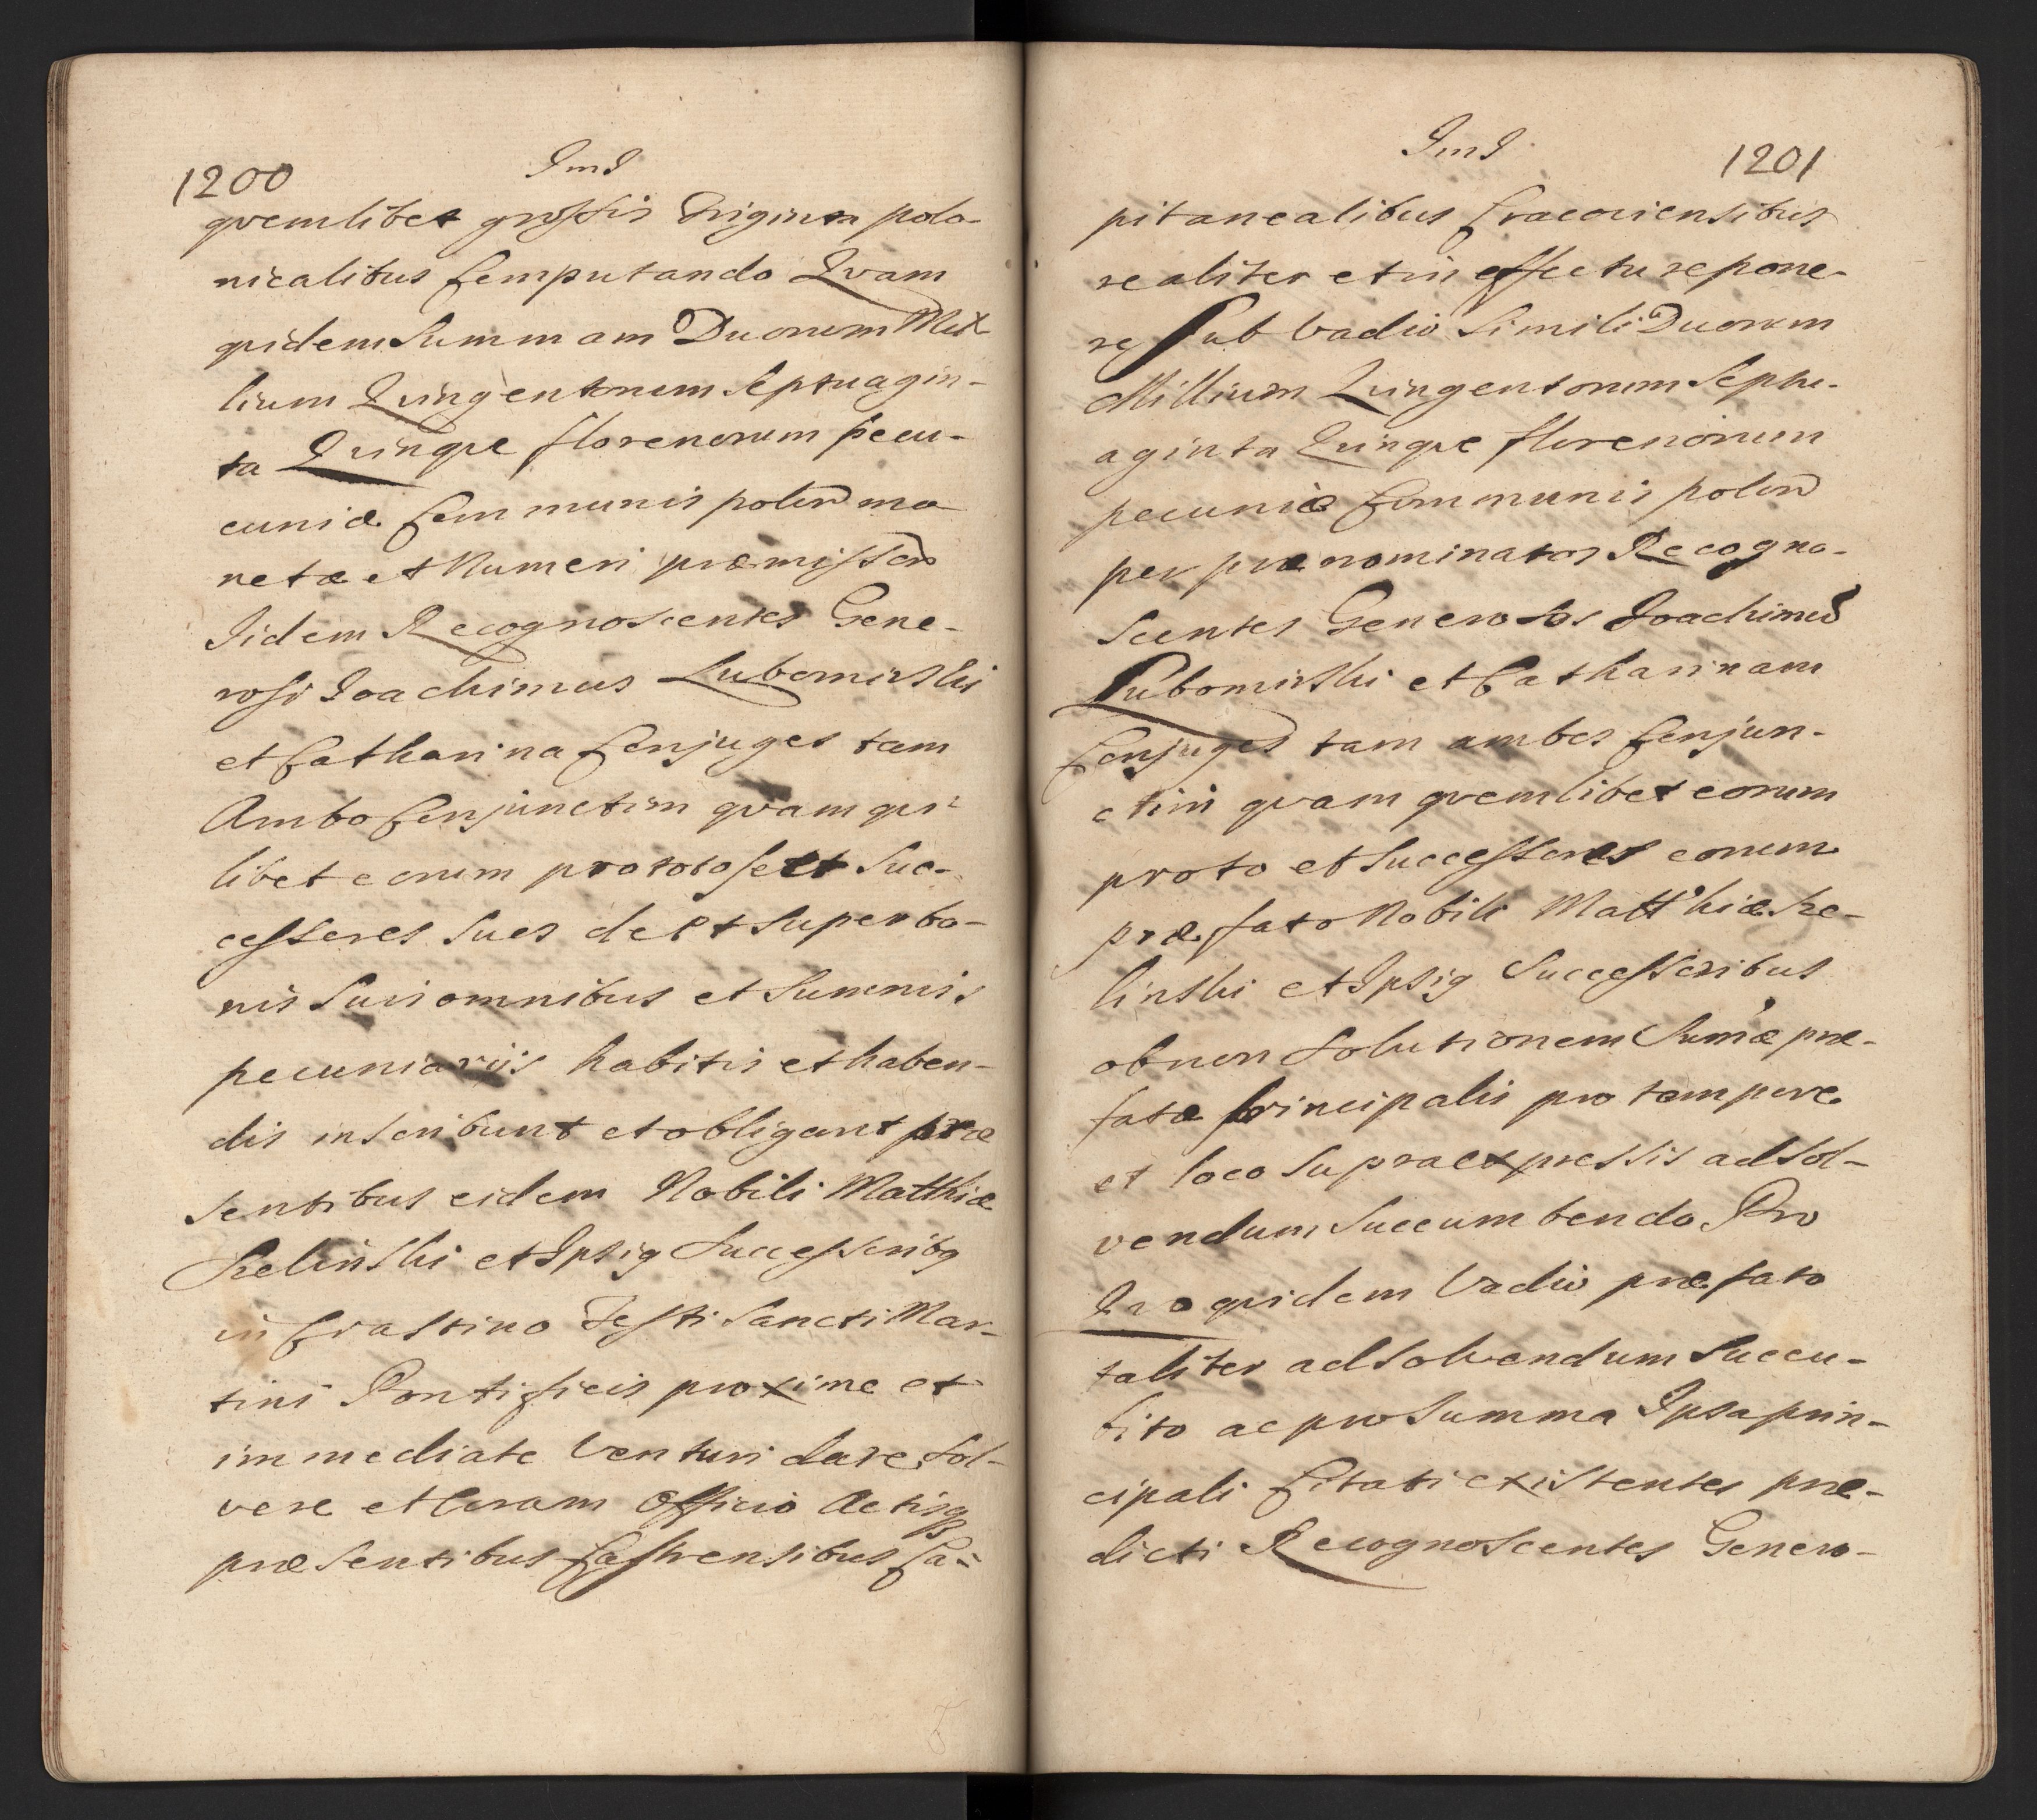 1200
ImJ
qvemlibet grossis Triginta polo-
nicalibus Computando Qvam
qvidem Summam Duorum Mil
lium Qvingentorum Septuagin-
ta Qvinqve florenorum pecu-
cuniæ Communis polon mo
netæ et Numeri præmissor
Iidem Recognoscentes Gene-
rosi Joachimus Lubomirski
et Catharina Conjuges tam
Ambo Conjunctim qvam qvi
libet eorum pro toto se et Suc-
cessores Suos de et Super bo-
nis Suis omnibus et Summis
pecuniariis habitis et haben-
dis inscribunt et obligant præ
sentibus eidem Nobili Matthiæ
Szelinski et Ipsig Successoribg
in Crastino Festi Sancti Mar-
tini Pontificis proxime et
immediate Venturi dare Sol-
vere et Coram Officio Actisq
præsentibus Castrensibus Ca-
ImJ
1201
pitanealibus Cracoviensibus
realiter et in effectu repone-
re Sub Vadio Simili Duorum
Millium Qvingentorum Septu-
aginta Qvinqve florenorum
pecuniæ Communis polon
per prænominatos Recogno-
scentes Generosos Joachimū
Lubomirski et Catharinam
Conjuges tam ambos Conjun-
ctim qvam qvemlibet eorum
pro to et Successores eorum
præfato Nobili Matthiæ Sze-
linski et Ipsig Successoribus
ob non Solutionem Sumæ præ-
fatæ principalis pro tempore
et loco Supraexpressis ad Sol-
vendum Succumbendo Pro
Qvo qvidem Vadio præfato
taliter ad Solvendum Succu-
bito ac pro Summa Ipsa prin-
cipali Citati existentes præ-
dicti Recognoscentes Genero-